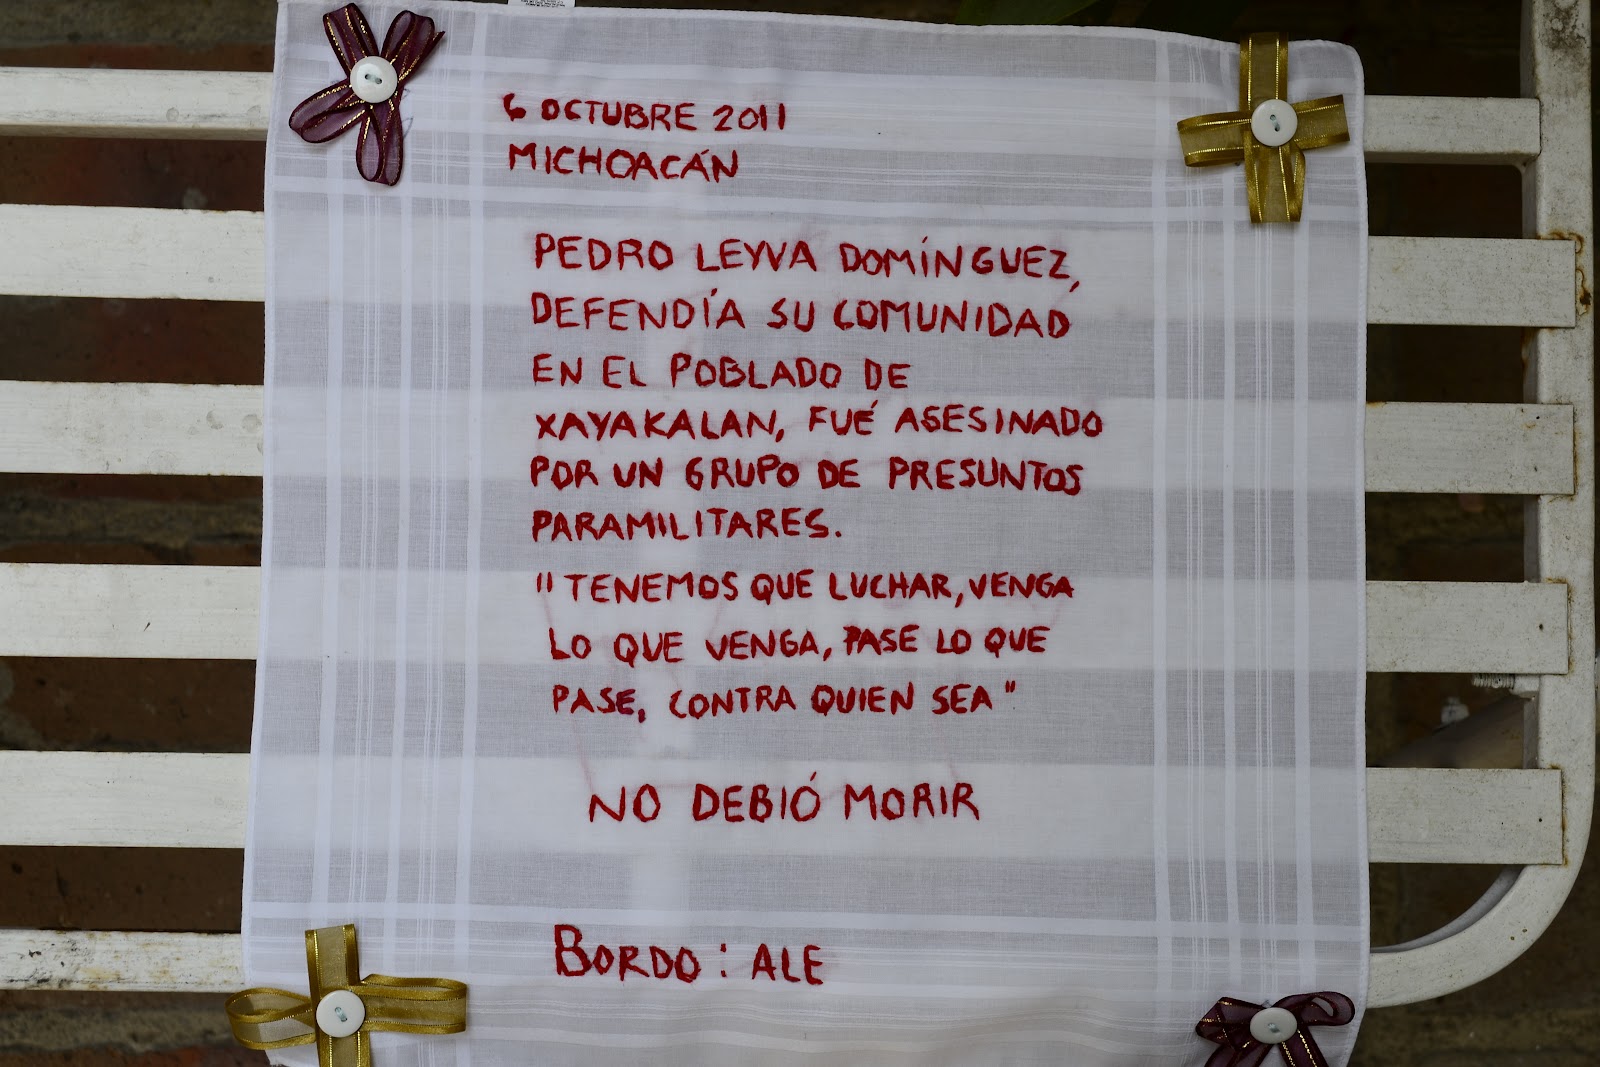 6 OCTUBRE 2011
MICHOACÁN
PEDRO LEYVA DOMÍNGUEZ,
DEFENDÍA SU COMUNIDAD
EN EL POBLADO DE
XAYAKALAN, FUÉ ASESINADO
POR UN GRUPO DE PRESUNTOS
PARAMILITARES.
"TENEMOS QUE LUCHAR, VENGA
LO QUE VENGA, PASE LO QUE
PASE, CONTRA QUIEN SEA"
NO DEBIÓ MORIR
BORDO: ALE